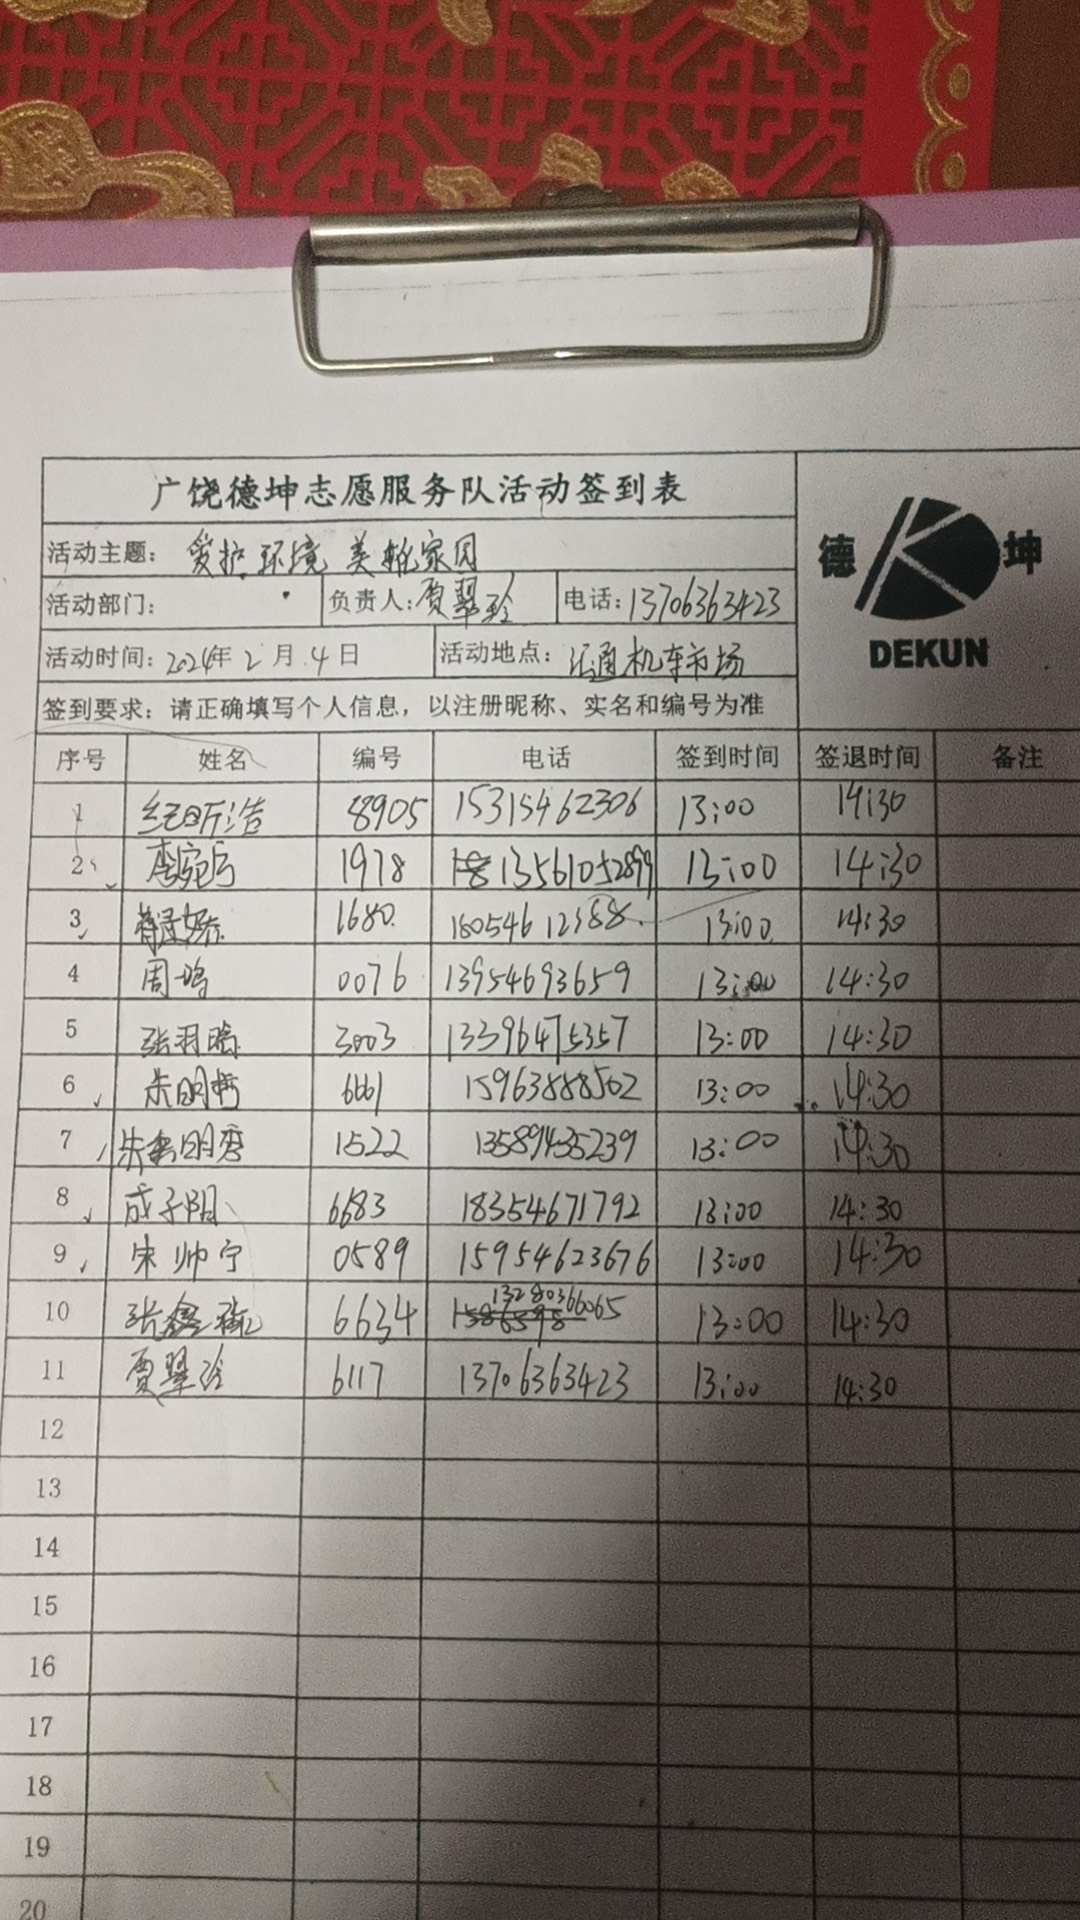 广饶德坤志愿服务队活动签到表
德 坤
DEKUN
活动主题： 爱护环境 美化家园
活动部门： 负责人：贾翠玲 电话：13706363423
活动时间：2024年2月4日 活动地点：汇通机车市场
签到要求：请正确填写个人信息，以注册昵称、实名和编号为准
序号 姓名 编号 电话 签到时间 签退时间 备注
1 纪昕浩 8905 15315462306 13:00 14:30
2 李宛 1978 13561052899 13:00 14:30
3 1680 18054612388 13:00 14:30
4 周鸣 0076 13954693659 13:00 14:30
5 张羽 3003 13396475357 13:00 14:30
6 朱明哲 6661 15963888502 13:00 14:30
7 朱明秀 1522 13589435239 13:00 14:30
8 成子阳 6683 18354671792 13:00 14:30
9 宋帅宁 0589 15954623676 13:00 14:30
10 张鑫 6634 13280366065 13:00 14:30
11 贾翠玲 6117 13706363423 13:00 14:30
12
13
14
15
16
17
18
19
20